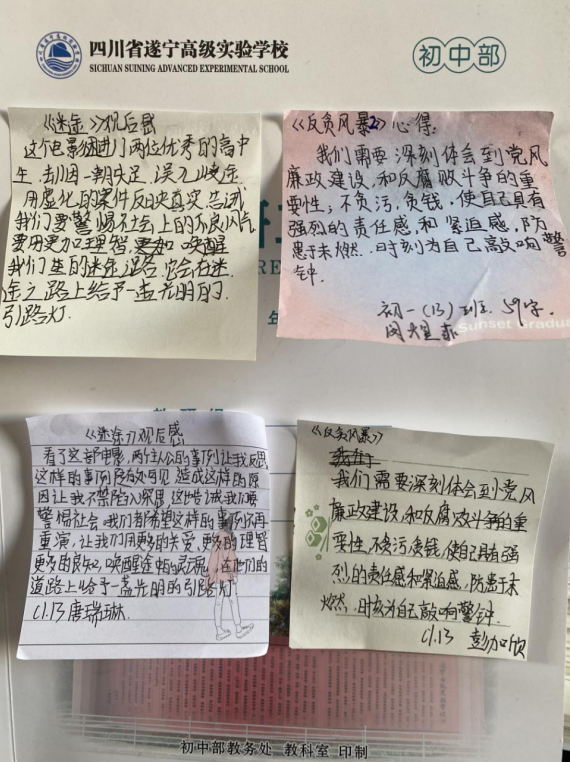 四川省遂宁高级实验学校
SICHUAN SUINING ADVANCED EXPERIMENTAL SCHOOL
初中部
《迷途》观后感
这个电影是进门两位优秀的高中
生,却因一朝失足,误入歧途
用虚化的案件反映真实,告诫
我们要警惕社会上的不良风气
要用更加理智,更加唤醒
我们迷途,它会在迷
途之路上给予一盏光明的
引路灯.
《反贪风暴2》心得:
我们需要深刻体会到党风
廉政建设,和反腐败斗争的重
要性,不贪污,贪钱,使自己具有
强烈的责任感,和紧迫感,防
患于未燃.时刻为自己敲响警
钟.
初一(13)班. 59字.
闵
Sunset Gradua
《迷途》观后感
看了这部电影,两位主人公的事例让我反思
这样的事例随处可见,造成这样的原
因让我不禁陷入深思,这也告诫我们要
警惕社会,我们都希望这样的事例不再
重演,让我们用更多的关爱,更多的理智
更多的良知,唤醒迷途的灵魂,在他们的
道路上给予一盏光明的引路灯
C1.13 唐瑞琳.
《反贪风暴》
我们需要深刻体会到党风
廉政建设,和反腐败斗争的重
要性,不贪污贪钱,使自己具有强
烈的责任感和紧迫感,防患于未
燃,时刻为自己敲响警钟.
C1.13 彭加欣
初中部教务处 教科室 印制